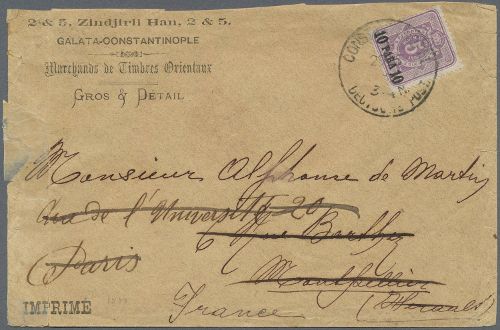 2 & 5, Zindjirli Han, 2 & 5.
GALATA-CONSTANTINOPLE
Marchands de Timbres Orientaux
GROS & DETAIL
10 PARA 10
5
DEUTSCHE POST
Monsieur Alphonse de Martin
Rue de l'Université 20
6 Rue Barthez
Paris
Montpellier
(Hérault)
France
IMPRIMÉ